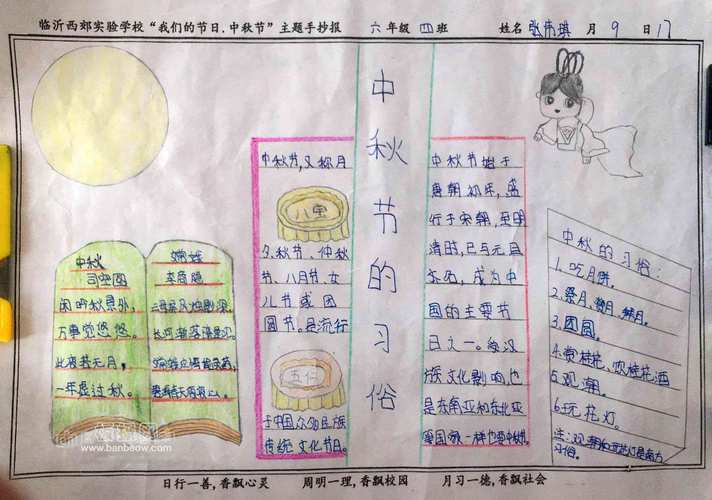 临沂西郊实验学校“我们的节日.中秋节”主题手抄报 六年级 四班 姓名 张雨琪 月 9 日 17
中秋节的习俗
中秋
司空图
闲吟秋景外,
万事觉悠悠。
此夜若无月,
一年虚过秋。
嫦娥
李商隐
云母屏风烛影深
长河渐落晓星沉
嫦娥应悔偷灵药,
碧海青天夜夜心。
中秋节,又称月
八宝
夕、秋节、仲秋
节、八月节、女
儿节或团
圆节。是流行
五仁
于中国众多民族
传统文化节日。
中秋节始于
唐朝初年,盛
行于宋朝,至明
清时,已与元旦
齐名,成为中
国的主要节
日之一。受汉
族文化影响,也
是东南亚和东北亚
中秋的习俗:
1.吃月饼。
2.祭月、赏月、拜月。
3.团圆。
4.赏桂花、饮桂花酒
5.观潮。
6.玩花灯。
习俗。
www.banbaow.com
日行一善,香飘心灵 周明一理,香飘校园 月习一德,香飘社会